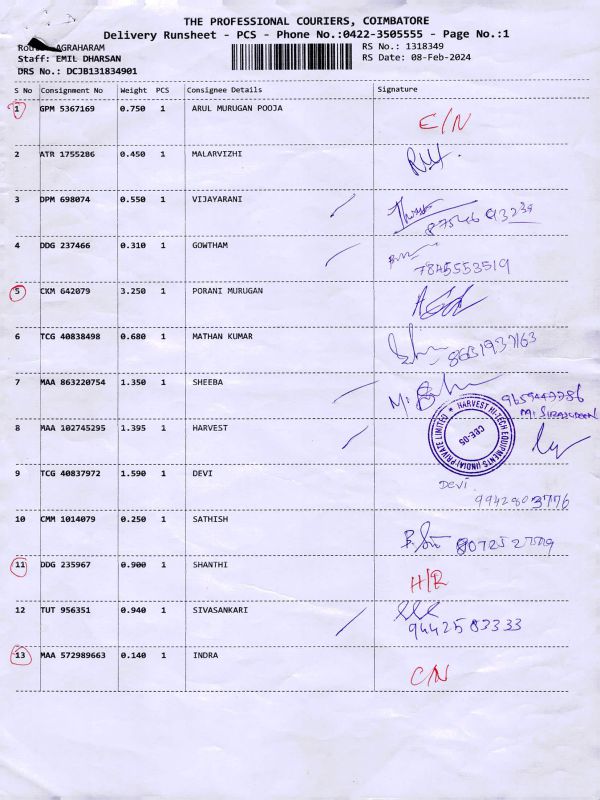 THE PROFESSIONAL COURIERS, COIMBATORE
Delivery Runsheet - PCS - Phone No.:0422-3505555 - Page No.:1
AGRAHARAM
RS No.: 1318349
Staff: EMIL DHARSAN
RS Date: 08-Feb-2024
DRS No.: DCJB131834901
S No Consignment No Weight PCS Consignee Details Signature
1 GPM 5367169 0.750 1 ARUL MURUGAN POOJA
2 ATR 1755286 0.450 1 MALARVIZHI
3 DPM 698074 0.550 1 VIJAYARANI
4 DDG 237466 0.310 1 GOWTHAM
7845553519
5 CKM 642079 3.250 1 PORANI MURUGAN
6 TCG 40838498 0.680 1 MATHAN KUMAR
7 MAA 863220754 1.350 1 SHEEBA
8 MAA 102745295 1.395 1 HARVEST
HARVEST HI-TECH EQUIPMENTS (INDIA) PRIVATE LIMITED
CBE-05
9 TCG 40837972 1.590 1 DEVI
DEVI
9942803776
10 CMM 1014079 0.250 1 SATHISH
11 DDG 235967 0.900 1 SHANTHI
H/R
12 TUT 956351 0.940 1 SIVASANKARI
9442583333
13 MAA 572989663 0.140 1 INDRA
C/N